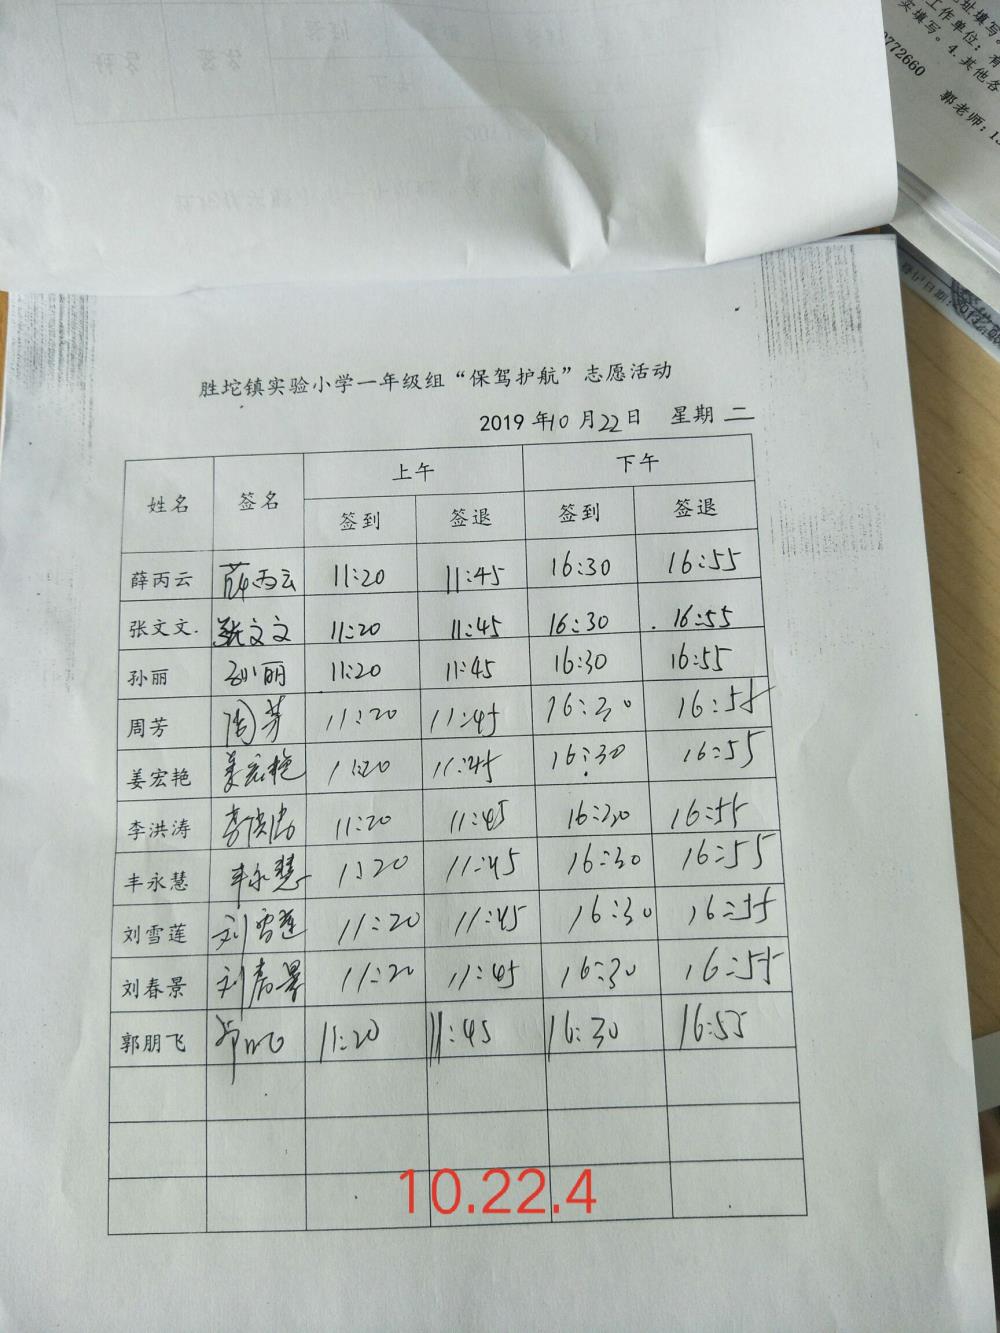 址填写
工作单位：有
实填写。4.其他各
0772660
郭老师：13
胜坨镇实验小学一年级组“保驾护航”志愿活动
2019 年10 月22日 星期 二
姓名 签名 上午 下午
签到 签退 签到 签退
薛丙云 薛丙云 11:20 11:45 16:30 16:55
张文文. 张文文 11:20 11:45 16:30 16:55
孙丽 孙丽 11:20 11:45 16:30 16:55
周芳 周芳 11:20 11:45 16:30 16:55
姜宏艳 姜宏艳 11:20 11:45 16:30 16:55
李洪涛 李洪涛 11:20 11:45 16:30 16:55
丰永慧 丰永慧 11:20 11:45 16:30 16:55
刘雪莲 刘雪莲 11:20 11:45 16:30 16:55
刘春景 刘春景 11:20 11:45 16:30 16:55
郭朋飞 11:20 11:45 16:30 16:55
10.22.4